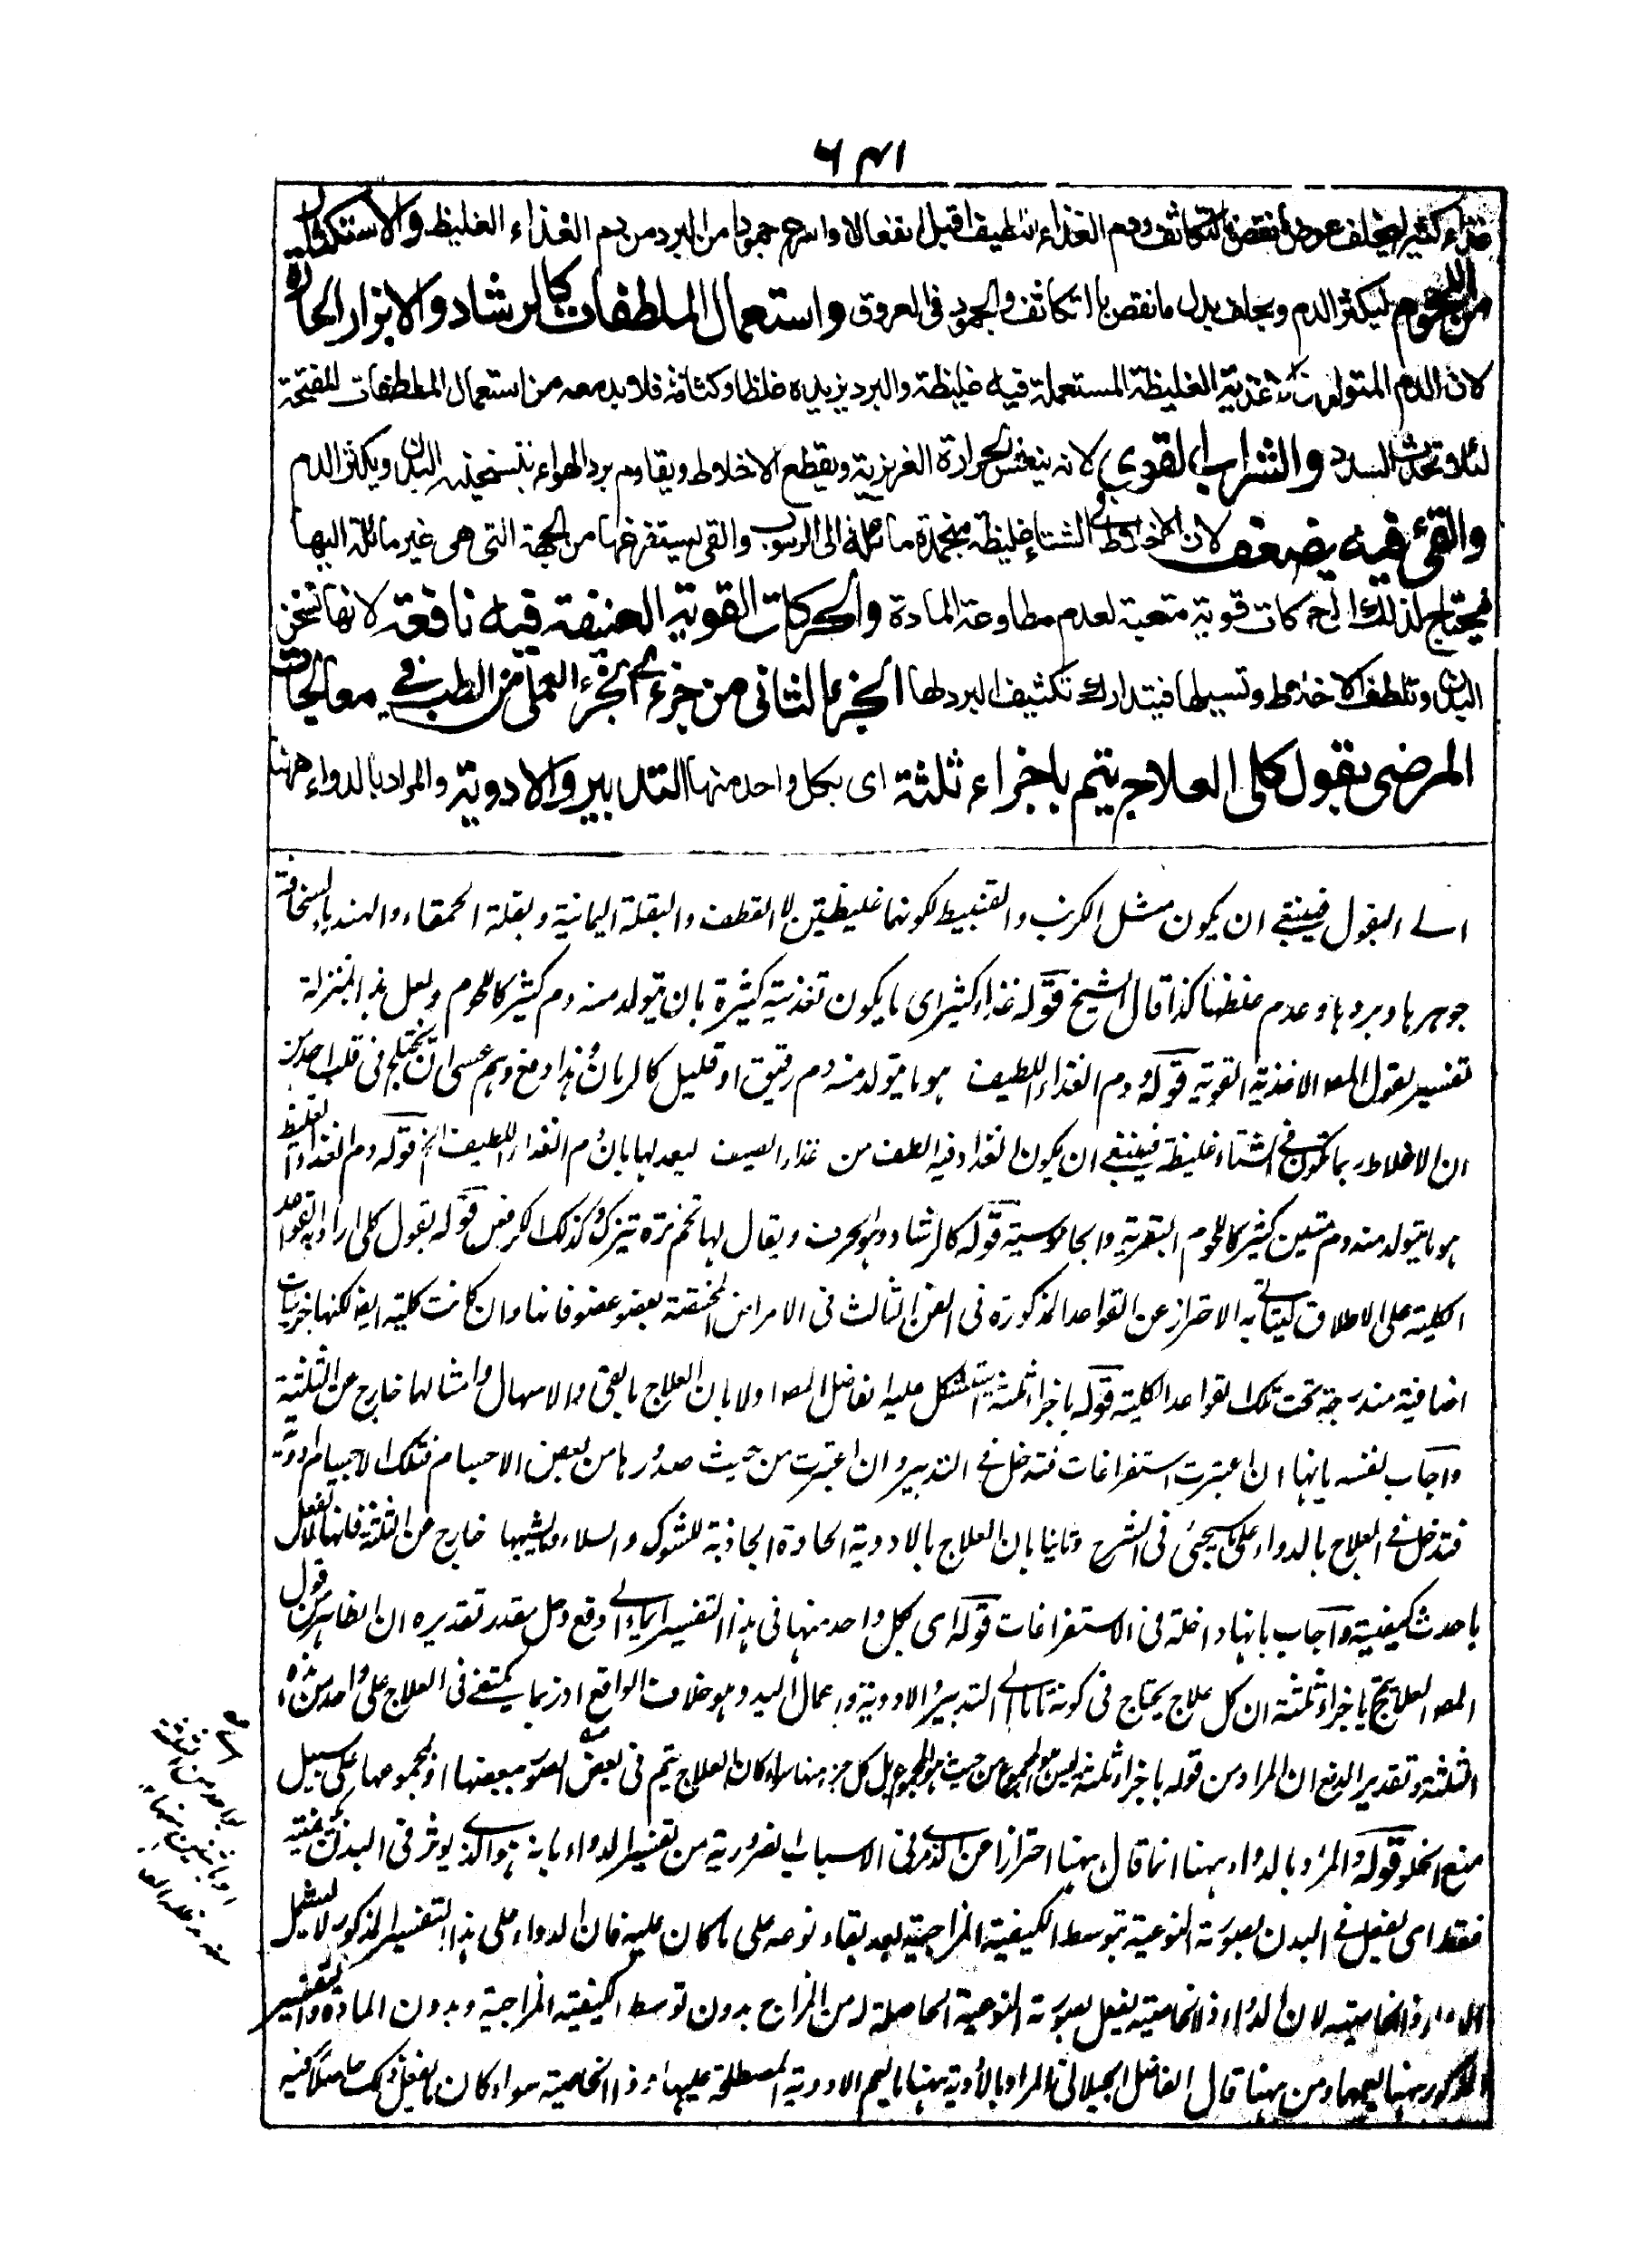 ۶۴۱
غذاء كثيرا ليخلف عوض ما نقص بالتكاثف ودم الغذاء اللطيف اقبل انفعالا واسرع جمودا من البرد من دم الغذاء الغليظ والاستكثار
من اللحوم ليكثر الدم ويخلف بدل ما نقص بالتكاثف والجمود فى العروق واستعمال الملطفات كالرشاد والابزار الحارة
لان الدم المتولد من الاغذية الغليظة المستعملة فيه غليظة والبرد يزيده غلظا وكثافة فلا بد معه من استعمال الملطفات المفتحة
لئلا تحدث السدد والشراب القوى لانه ينعش الحرارة الغريزية ويقطع الاخلاط ويقاوم برد الهواء بتسخينه البدن ويكثر الدم
والقئ فيه يضعف لان الاخلاط فى الشتاء غليظة منجمدة مائلة الى الرسوب والقى يستفرغها من الجهة التى هى غير مائلة اليها
فيحتاج لذلك الى حركات قوية متعبة لعدم مطاوعة المادة والحركات القوية العنيفة فيه نافعة لانها تسخن
البدن وتلطف الاخلاط وتسيلها فيتدارك تكثيف البرد لها الجزء الثانى من جزءى الجزء العملى من الطب فى معالجات
المرضى بقول كلى العلاج يتم باجزاء ثلثة اى بكل واحد منها التدبير والادوية والمراد بالدواء ههنا
الے البقول فينبغے ان يكون مثل الكرنب والقنبيط لكونهما غليظين لا القطف والبقلة اليمانية وبقلة الحمقاء والهندبا لسخافة
جوهرها وبردها وعدم غلظها كذا قال الشيخ قوله غذاء كثيرا اى ما يكون تغذيته كثيرة بان يتولد منه دم كثير كاللحوم ولعل هذا بمنزلة
تفسير لقول المص الاغذية القوية قوله ودم الغذاء اللطيف هو ما يتولد منه دم رقيق او قليل كالرمان وهذا دفع وهم عسى ان يختلج فى قلب احد من
ان الاخلاط ربما تكون فى الشتاء غليظة فينبغے ان يكون الغذاء فيه الطف من غذاء الصيف ليعدلها بان دم الغذاء اللطيف الخ قوله دم الغذاء الغليظ
هو ما يتولد منه دم متين كثير كاللحوم البقرية والجاموسية قوله كالرشاد وهو الحرف ويقال لها تخم تره تيزك وكذلك الكرفس قوله بقول كلى اراد به القواعد
الكلية على الاطلاق ليتاتى به الاحتراز عن القواعد المذكورة فى الفن الثالث فى الامراض المختصة بعضو عضو فانها وان كانت كلية ايضا لكنها جزئيات
اضافية مندرجة تحت تلك القواعد الكلية قوله باجزاء ثلثة استشكل عليه الفاضل المص اولا بان العلاج بالقئ والاسهال وامثالهما خارج عن الثلثة
واجاب لنفسه بانها ان اعتبرت استفراغات فتدخل فے التدبير وان اعتبرت من حيث صدورها من بعض الاجسام فتلك الاجسام ادوية
فتدخل فے العلاج بالدواء على ما سيجئ فى الشرح وثانيا بان العلاج بالادوية الحادة الجاذبة للشوك والسلاء وما يشبهها خارج عن الثلثة فانها لا تفعل
باحداث كيفية واجاب بانها داخلة فى الاستفراغات قوله اى بكل واحد منها فى هذا التفسير ايماء الے دفع دخل مقدر تقديره ان الظاهر من قول
المص العلاج يتم باجزاء ثلثة ان كل علاج يحتاج فى كونه تاما الے التدبير والادوية واعمال اليد وهو خلاف الواقع اذ ربما يكتفے فى العلاج على واحد من هذه
الثلثة وتقدير الدفع ان المراد من قوله باجزاء ثلثة ليس هو المجموع من حيث هو المجموع بل كل جزء منها سواء كان العلاج يتم فى بعض الصور ببعضها او بمجموعها على سبيل
منع الخلو قوله والمراد بالدواء ههنا انما قال ههنا احترازا عن الذے مر فى الاسباب الضرورية من تفسير الدواء بانه هو الذے يوثر فى البدن بكيفيته
فقط اى يفعل فے البدن بصورته النوعية بتوسط الكيفية المزاجية بعد بقاء نوعه على ما كان عليه فان الدواء على هذا التفسير المذكور لا يشمل
الدواء ذو الخاصية لان الدواء ذو الخاصية يفعل بصورته النوعية الحاصلة له من المزاج بدون توسط الكيفية المزاجية وبدون المادة والتفسير
المذكور ههنا يعمهما ومن ههنا قال الفاضل الجيلانى المراد بالادوية ههنا ما يعم الادوية المصطلحة عليها وذا الخاصية سواء كان ما يفعل ذلك حاصلا فيه
بواحد من الثلثة
او باثنين منها